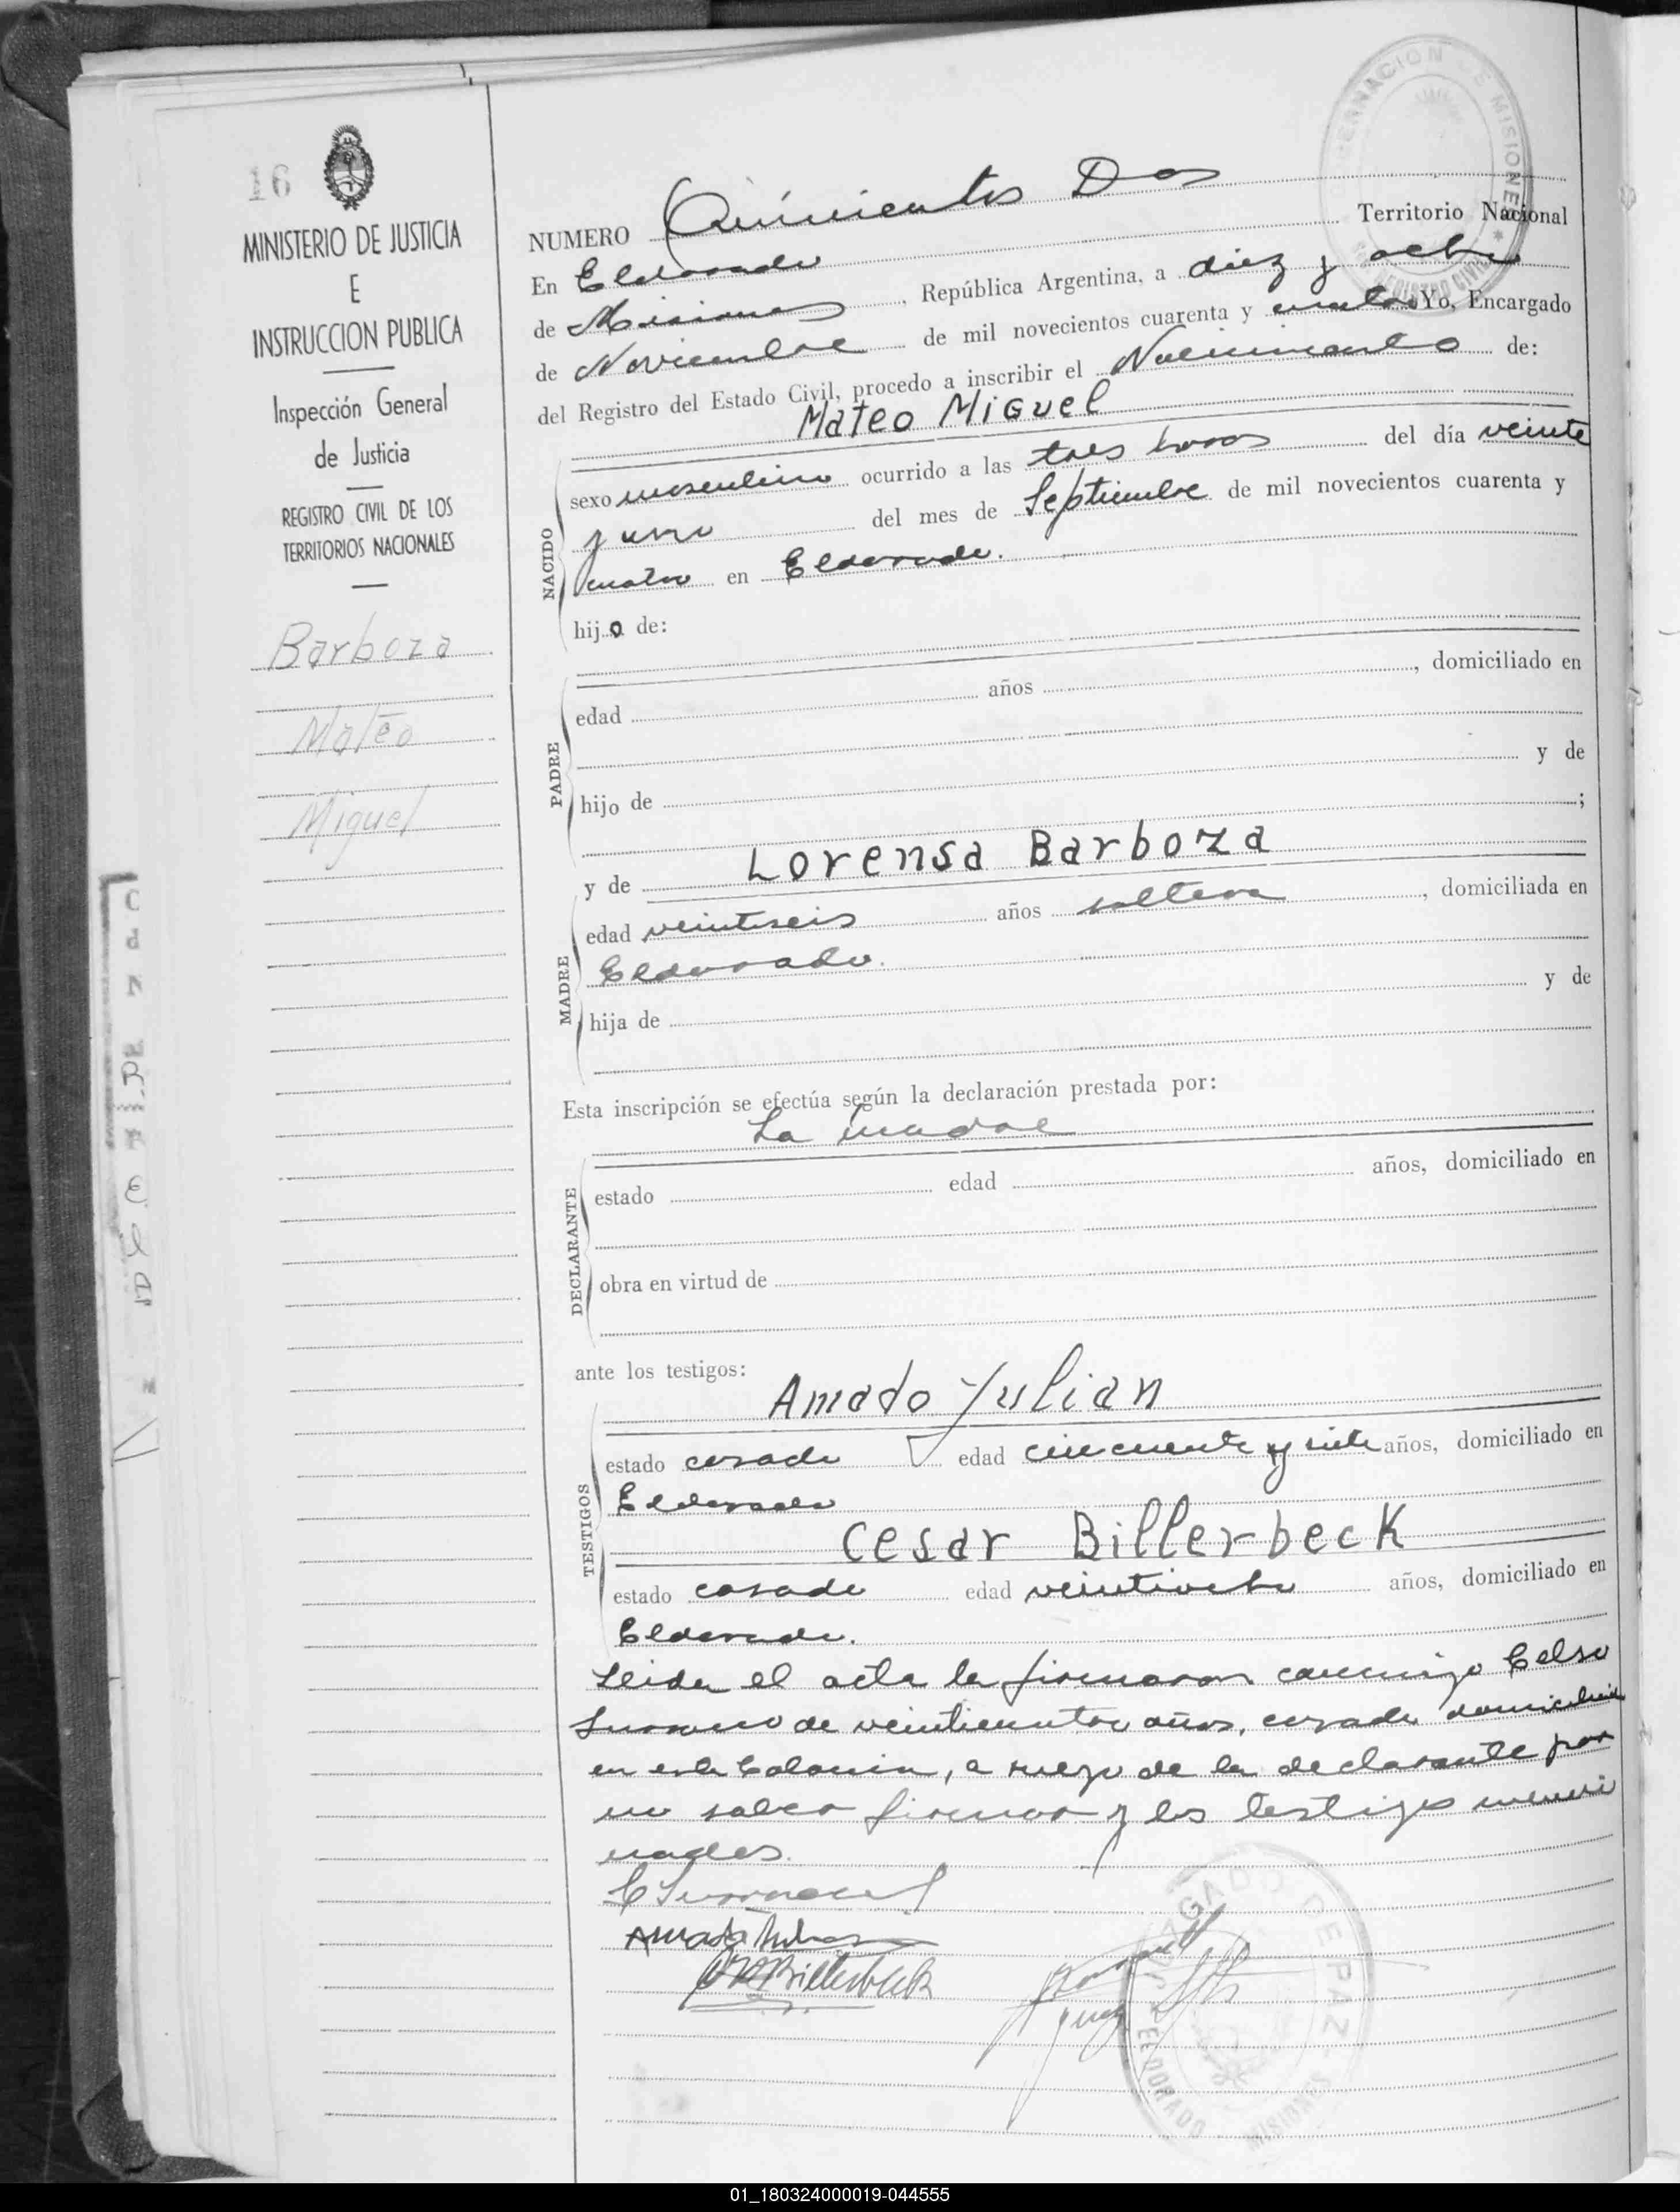 16
MINISTERIO DE JUSTICIA
E
INSTRUCCION PUBLICA
Inspección General
de Justicia
REGISTRO CIVIL DE LOS
TERRITORIOS NACIONALES
Barboza
Mateo
Miguel
GOBERNACION DE MISIONES
REGISTRO CIVIL
NUMERO Quinientos Dos
En Eldorado Territorio Nacional
de Misiones, República Argentina, a diez y ocho
de Noviembre de mil novecientos cuarenta y cuatro Yo, Encargado
del Registro del Estado Civil, procedo a inscribir el Nacimiento de:
Mateo Miguel
NACIDO
sexo masculino ocurrido a las tres horas del día veinte
y uno del mes de Septiembre de mil novecientos cuarenta y
cuatro en Eldorado.
hijo de:
PADRE
edad años , domiciliado en
hijo de y de
;
y de Lorensa Barboza
MADRE
edad veintiseis años soltera , domiciliada en
Eldorado.
hija de y de
Esta inscripción se efectúa según la declaración prestada por:
La madre
DECLARANTE
estado edad años, domiciliado en
obra en virtud de
ante los testigos:
TESTIGOS
Amado Julian
estado casado edad cincuenta y siete años, domiciliado en
Eldorado
Cesar Billerbeck
estado casado edad veintiocho años, domiciliado en
Eldorado.
Leida el acta la firmaron conmigo Celso
de veinticuatro años, casado domiciliado
en esta Colonia, a ruego de la declarante por
no saber firmar y los testigos menci
nados.
Amado Julian
Billerbeck
Juez
JUZGADO DE PAZ
ELDORADO MISIONES
01_180324000019-044555